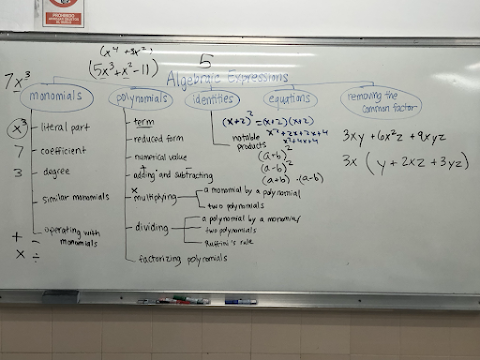 PROHIBIDO
(x⁴ + 3x²)
(5x³ + x² - 11)
5
7x³
Algebraic Expressions
monomials
polynomials
identities
equations
removing the common factor
x³
literal part
7
coefficient
3
degree
similar monomials
+ -
x ÷
operating with monomials
term
reduced form
numerical value
+
adding and subtracting
x
multiplying
a monomial by a polynomial
two polynomials
dividing
a polynomial by a monomial
two polynomials
Ruffini's rule
factorizing polynomials
notable products
(x+2)² = (x+2)(x+2)
x² + 2x + 2x + 4
x² + 4x + 4
(a+b)²
(a-b)²
(a+b) · (a-b)
3xy + 6x²z + 9xyz
3x (y + 2xz + 3yz)